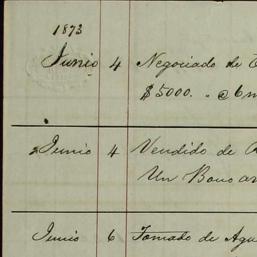 1873
Junio 4 Negociado de
$5000. @ 6 m
Junio 4 Vendido de
Un Bono
Junio 6 Tomado de Agu